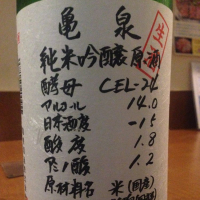 亀泉
生
純米吟醸原酒
酵母 CEL-24
アルコール 14.0
日本酒度 -15
酸度 1.8
アミノ酸 1.2
原材料名 米(国産)